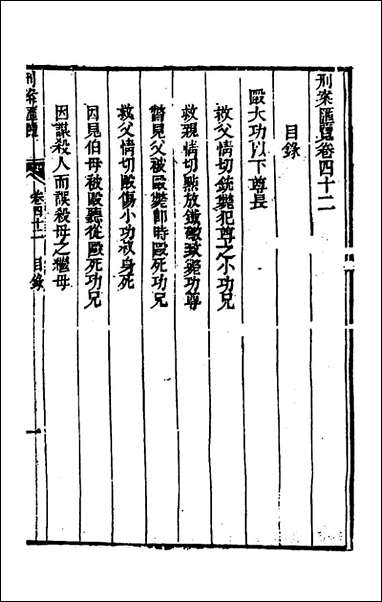 刑案匯覽卷四十二
目錄
毆大功以下尊長
救父情切銃斃犯尊之小功兄
救親情切點放鐵銃致斃功尊
瞥見父被毆斃即時毆死功兄
救父情切毆傷小功叔身死
因見伯母被毆聽從毆死功兄
因謀殺人而誤殺母之繼母
刑案匯覽 卷四十二 目錄 一